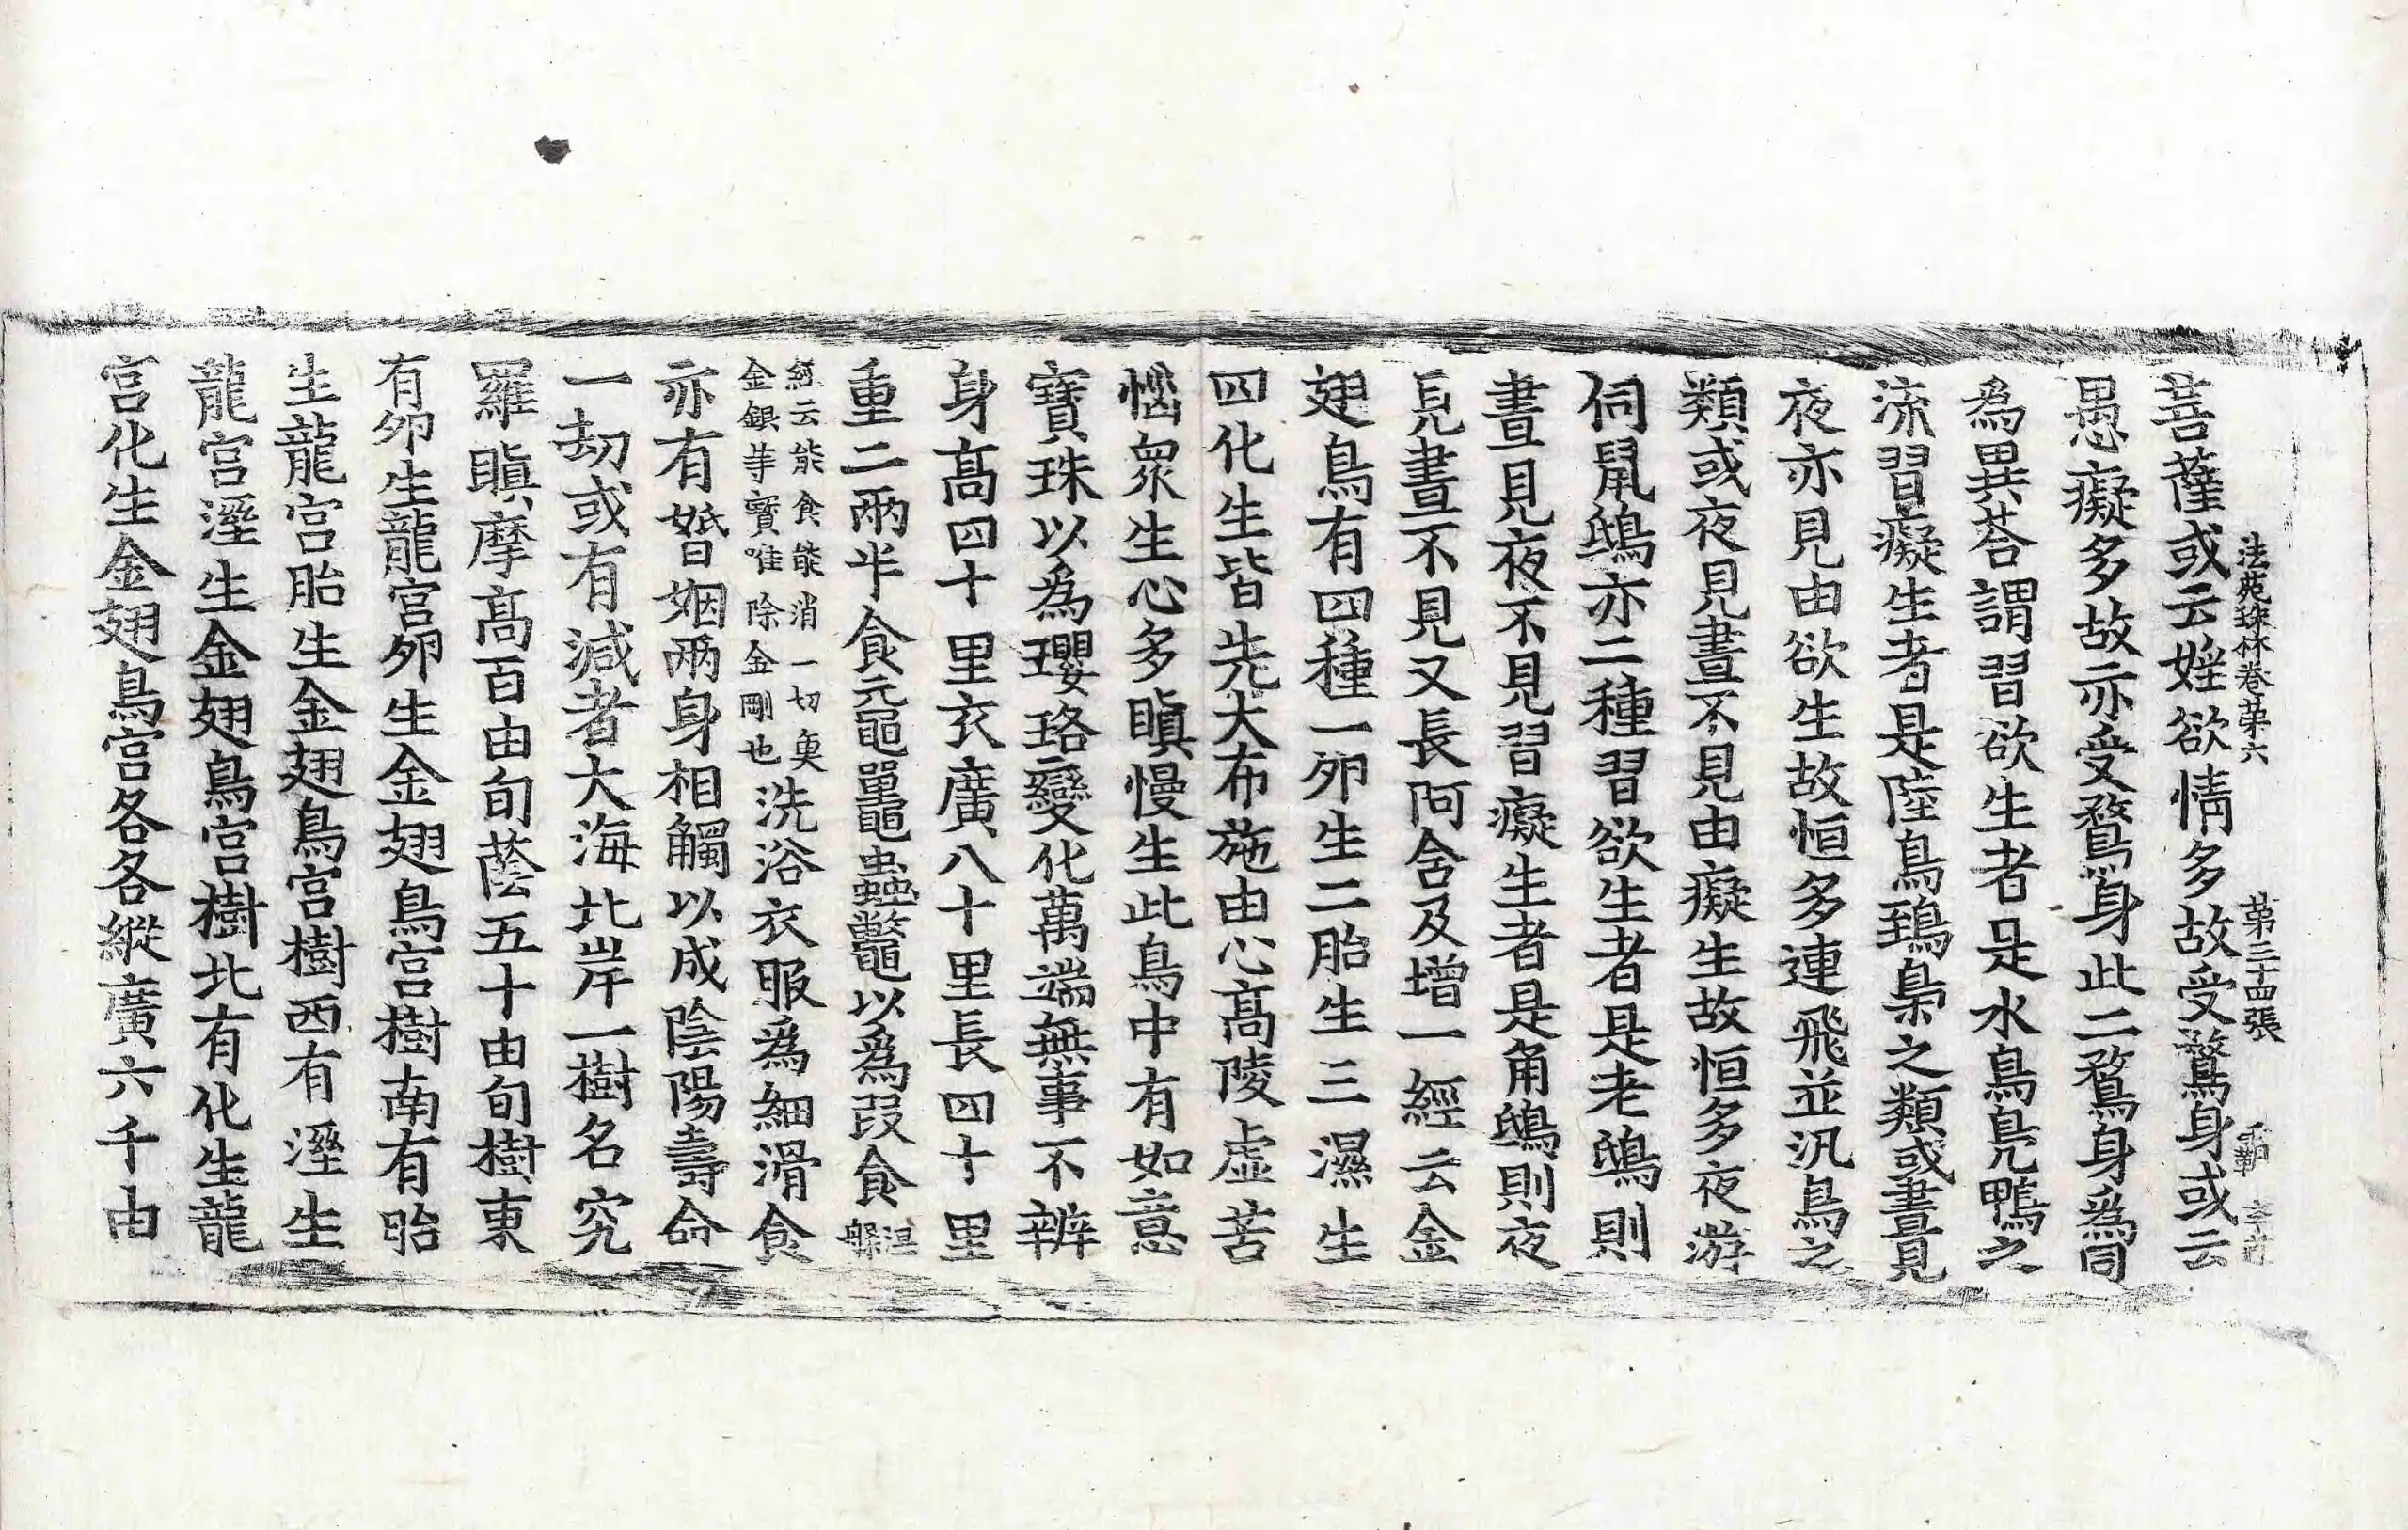 法苑珠林卷苐六 苐三十四張
菩薩或云婬欲情多故受鶩身或云
愚癡多故亦受鶩身此二鶩身爲同
爲異荅謂習欲生者是水鳥鳧鴨之
流習癡生者是陸鳥鵄梟之類或晝見
夜亦見由欲生故恒多連飛並汎鳥之
類或夜見晝不見由癡生故恒多夜游
伺鼠鴟亦二種習欲生者是老鴟則
晝見夜不見習癡生者是角鴟則夜
見晝不見又長阿含及增一經云金
翅鳥有四種一卵生二胎生三濕生
四化生皆先大布施由心高陵虛苦
惱衆生心多瞋慢生此鳥中有如意
寶珠以爲瓔珞變化萬端無事不辨
身高四十里衣廣八十里長四十里
重二兩半食元黿鼉蟲鼈以爲段食 涅槃
經云能食能消一切魚
金銀等寶唯除金剛也 洗浴衣服爲細滑食
亦有婚姻兩身相觸以成陰陽壽命
一劫或有減者大海北岸一樹名究
羅瞋摩高百由旬蔭五十由旬樹東
有卵生龍宮卵生金翅鳥宮樹南有胎
生龍宮胎生金翅鳥宮樹西有溼生
龍宮溼生金翅鳥宮樹北有化生龍
宮化生金翅鳥宮各各縱廣六千由